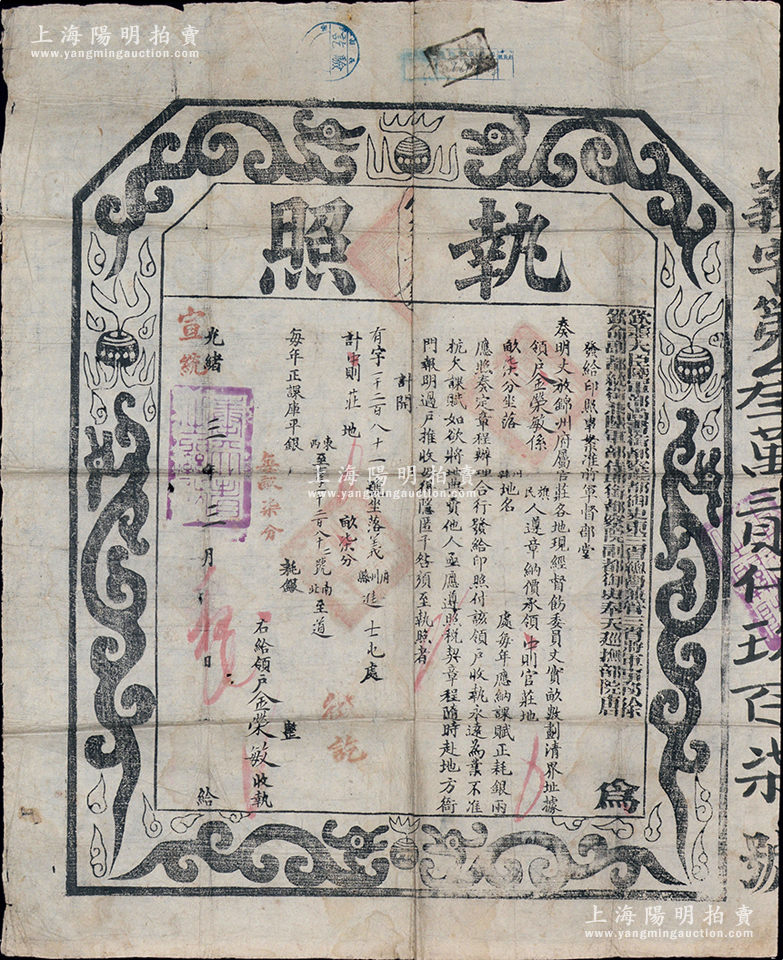 上海陽明拍賣
www.yangmingauction.com
執照
欽差大臣陸軍部尚書都察院都御史東三省總督兼管三省將軍事務徐
欽命副都統銜陸軍部侍郎銜都察院副都御史奉天巡撫部院唐
為
發給印照事案准將軍督部堂
奏明丈放錦州府屬官莊各地現經督飭委員丈實畝數劃清界址據
領戶金榮敏係 旗民 人遵章納價承領中則官莊地
畝柒分坐落 州縣 地名 處每年應納課賦正耗銀兩
應照奏定章程辦理合行發給印照付該領戶收執永遠為業不准
抗欠課賦如欲將地典賣他人亟應遵照稅契章程隨時赴地方衙
門報明過戶推收毋得隱匿干咎須至執照者
計開
有字一千二百八十一號坐落義 府州縣 進士屯處
計中則莊地 畝柒分
東至 西至 千二百八十二號 南北至道
每年正課庫平銀
耗銀
無畝柒分
右給領戶金榮敏收執
光緒
宣統
三年三月 日
給
訖
義字第叁萬貳仟玖百柒 號
上海陽明拍賣
www.yangmingauction.com